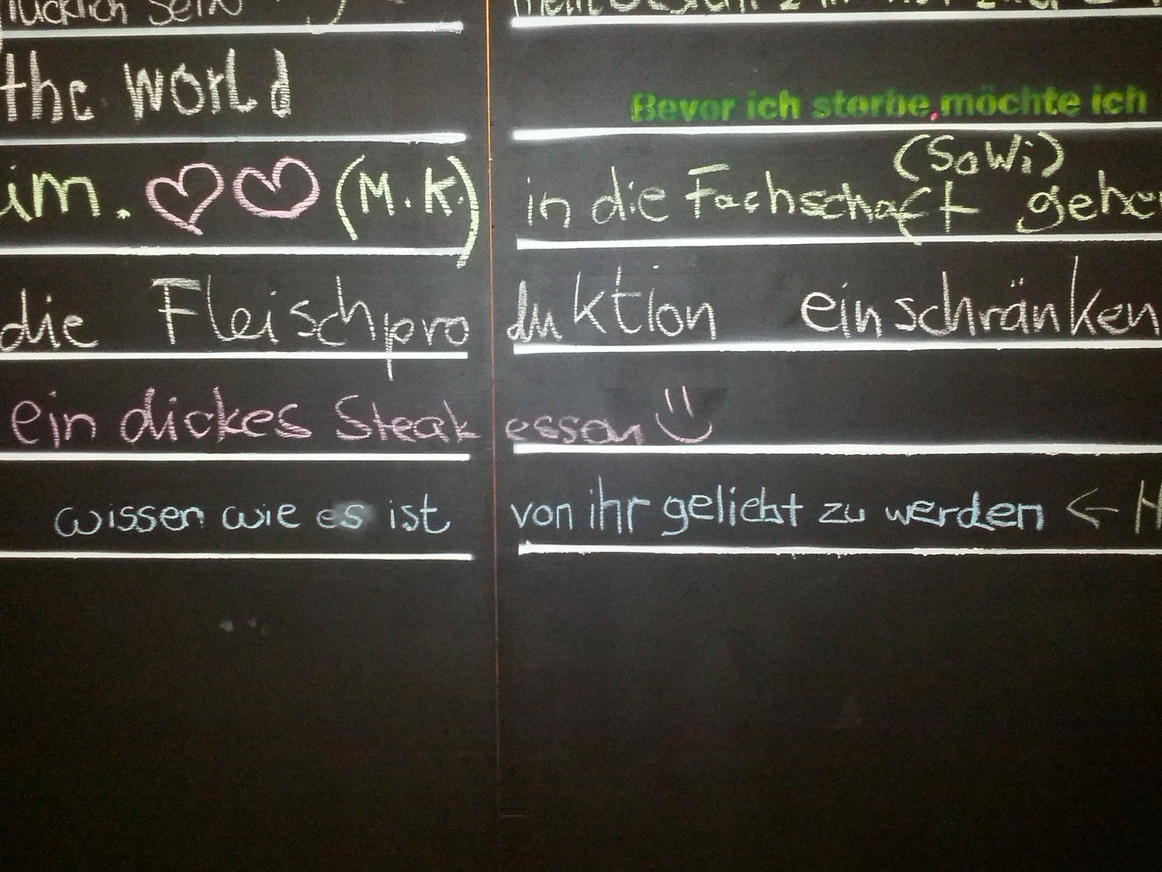 glücklich sein
the world
Bevor ich sterbe, möchte ich
im. ♡♡ (M.K.)
(SoWi)
in die Fachschaft gehen
die Fleischproduktion einschränken
ein dickes Steak essen
wissen wie es ist von ihr geliebt zu werden ←